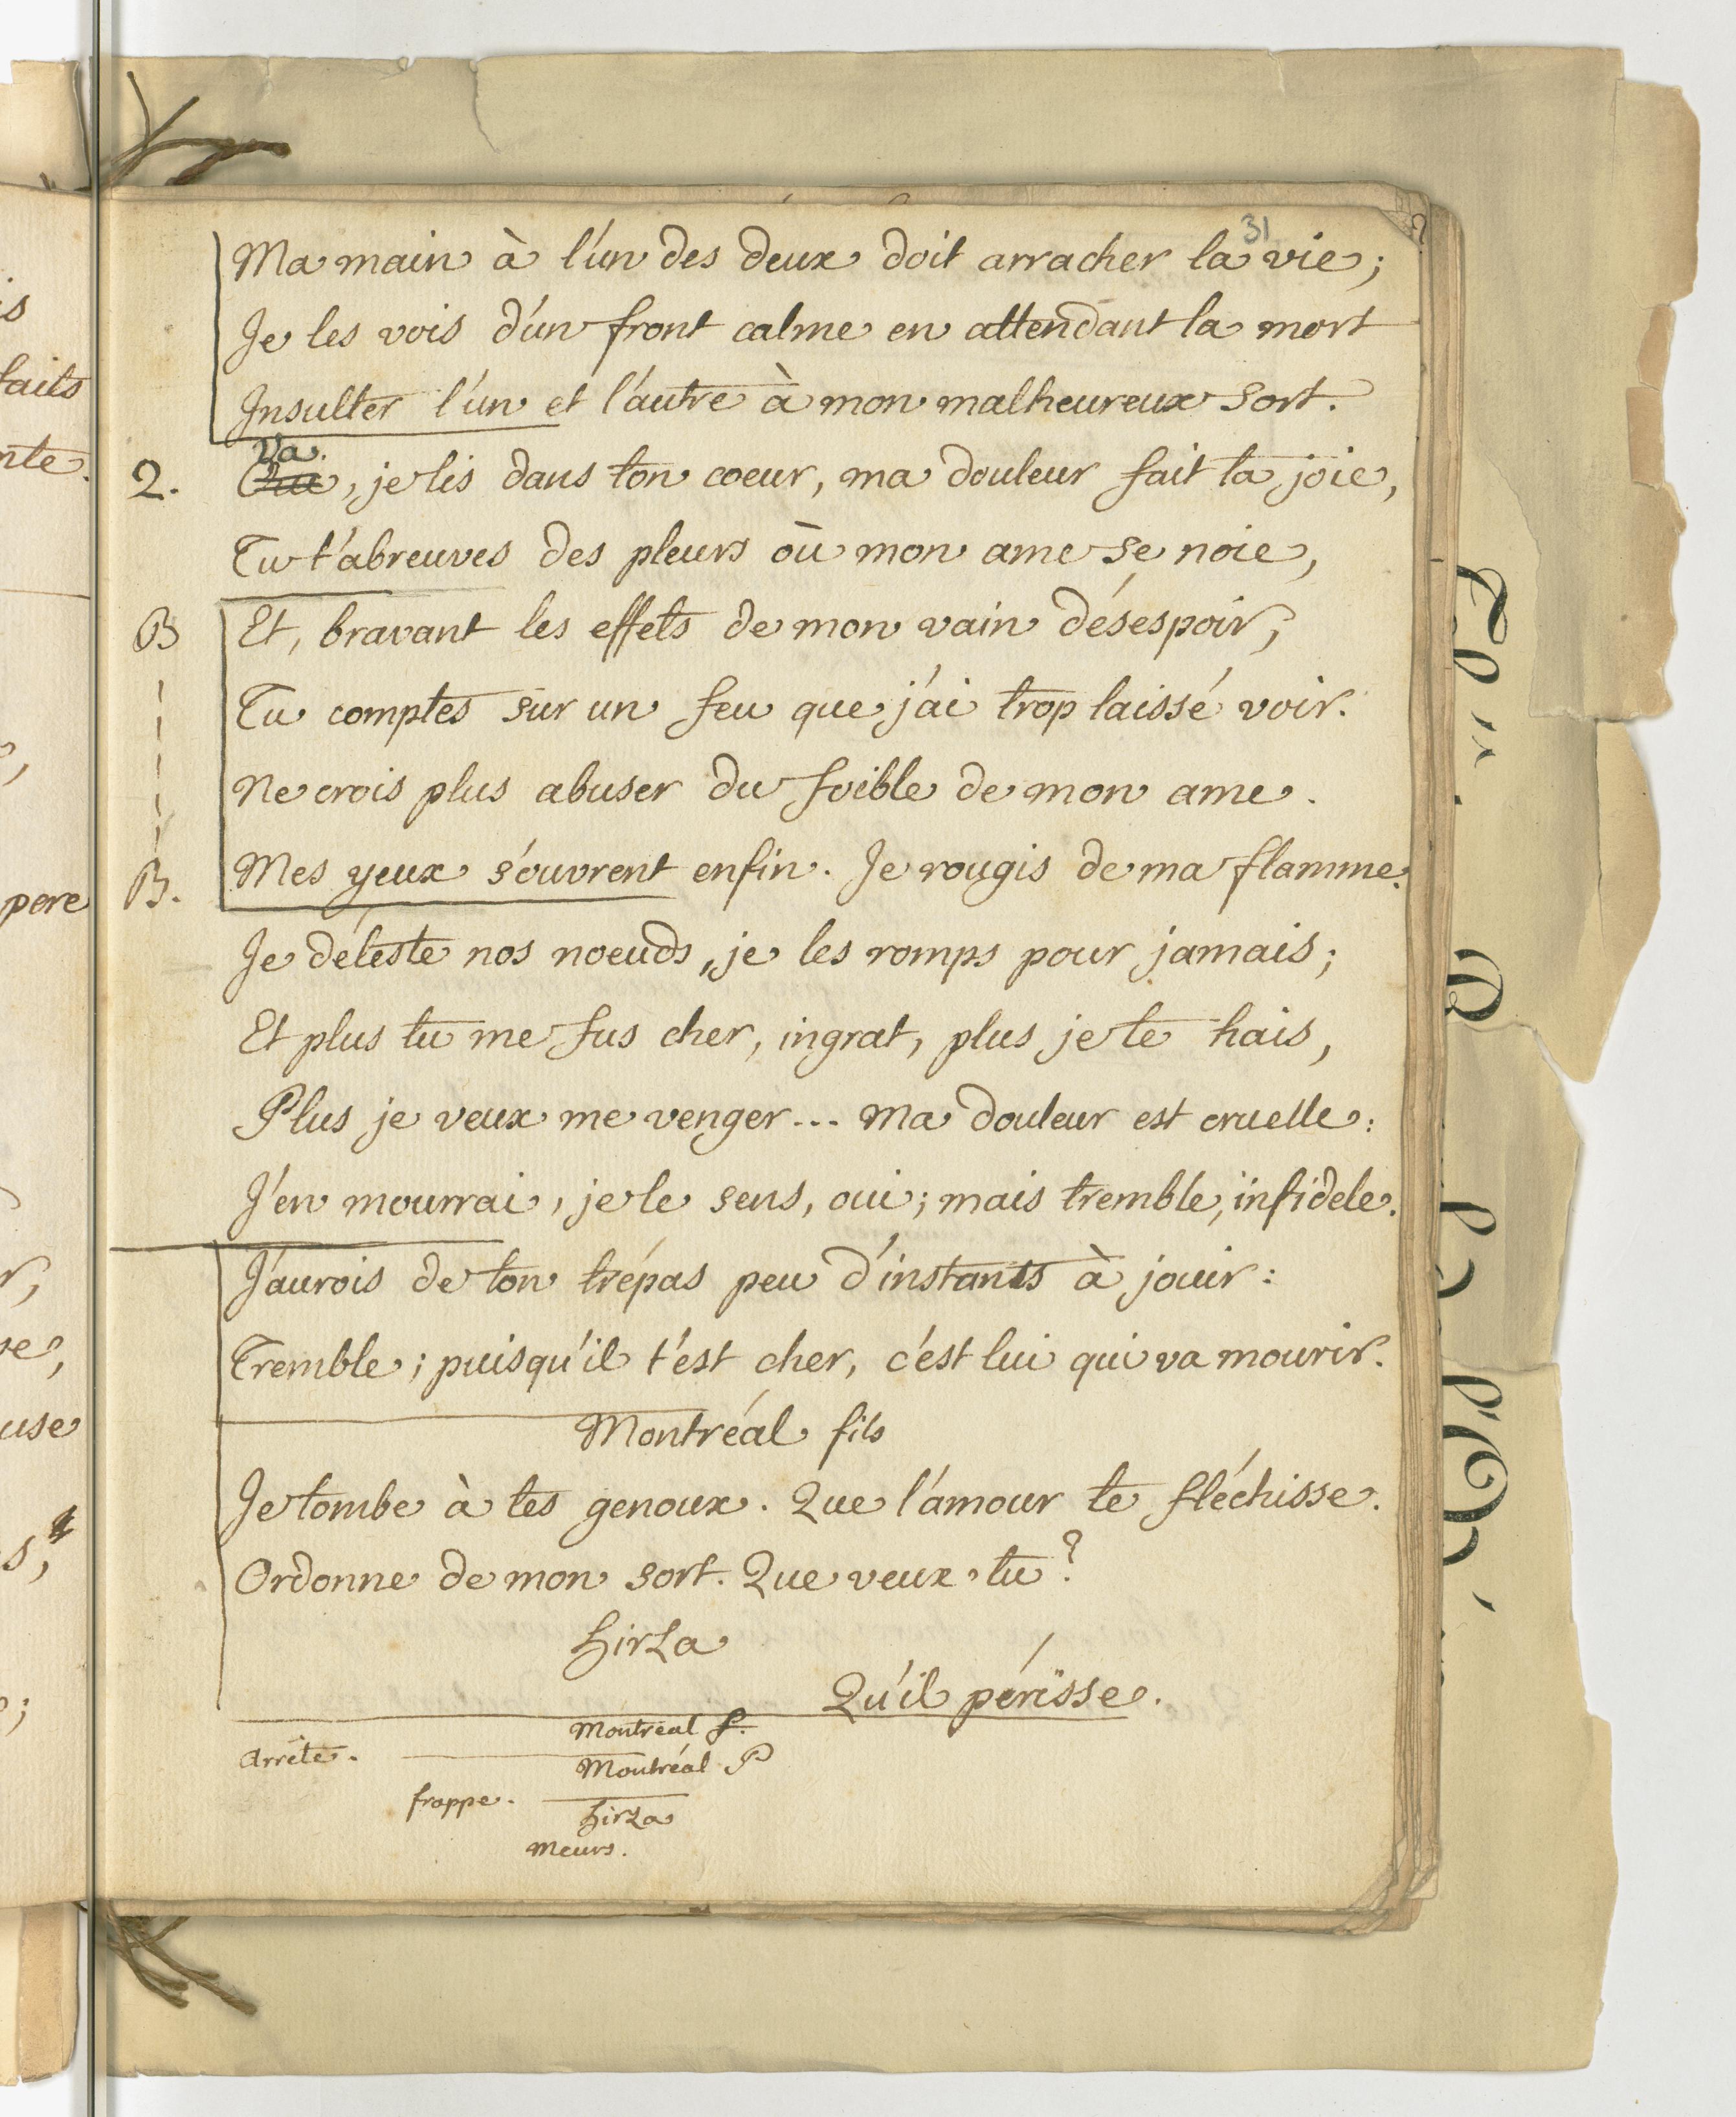 31
Ma main à l'un des deux doit arracher la vie;
Je les vois d'un front calme en attendant la mort
Insulter l'un et l'autre à mon malheureux sort.
Va.
2. , je lis dans ton coeur, ma douleur fait ta joie,
Tu t'abreuves des pleurs où mon ame se noie,
B Et, bravant les effets de mon vain désespoir,
Tu comptes sur un feu que j'ai trop laissé voir.
Ne crois plus abuser du foible de mon ame.
B. Mes yeux s'ouvrent enfin. Je rougis de ma flamme.
Je déteste nos noeuds, je les romps pour jamais;
Et plus tu me fus cher, ingrat, plus je te hais,
Plus je veux me venger... Ma douleur est cruelle:
J'en mourrai, je le sens, oui; mais tremble, infidele.
J'aurois de ton trépas peu d'instants à jouir:
Tremble; puisqu'il t'est cher, c'est lui qui va mourir.
Montréal fils
Je tombe à tes genoux. Que l'amour te fléchisse.
Ordonne de mon sort. Que veux-tu?
hirza
Qu'il périsse.
Montreal f.
arrête.
Montréal P
frappe.
hirza
meurs.